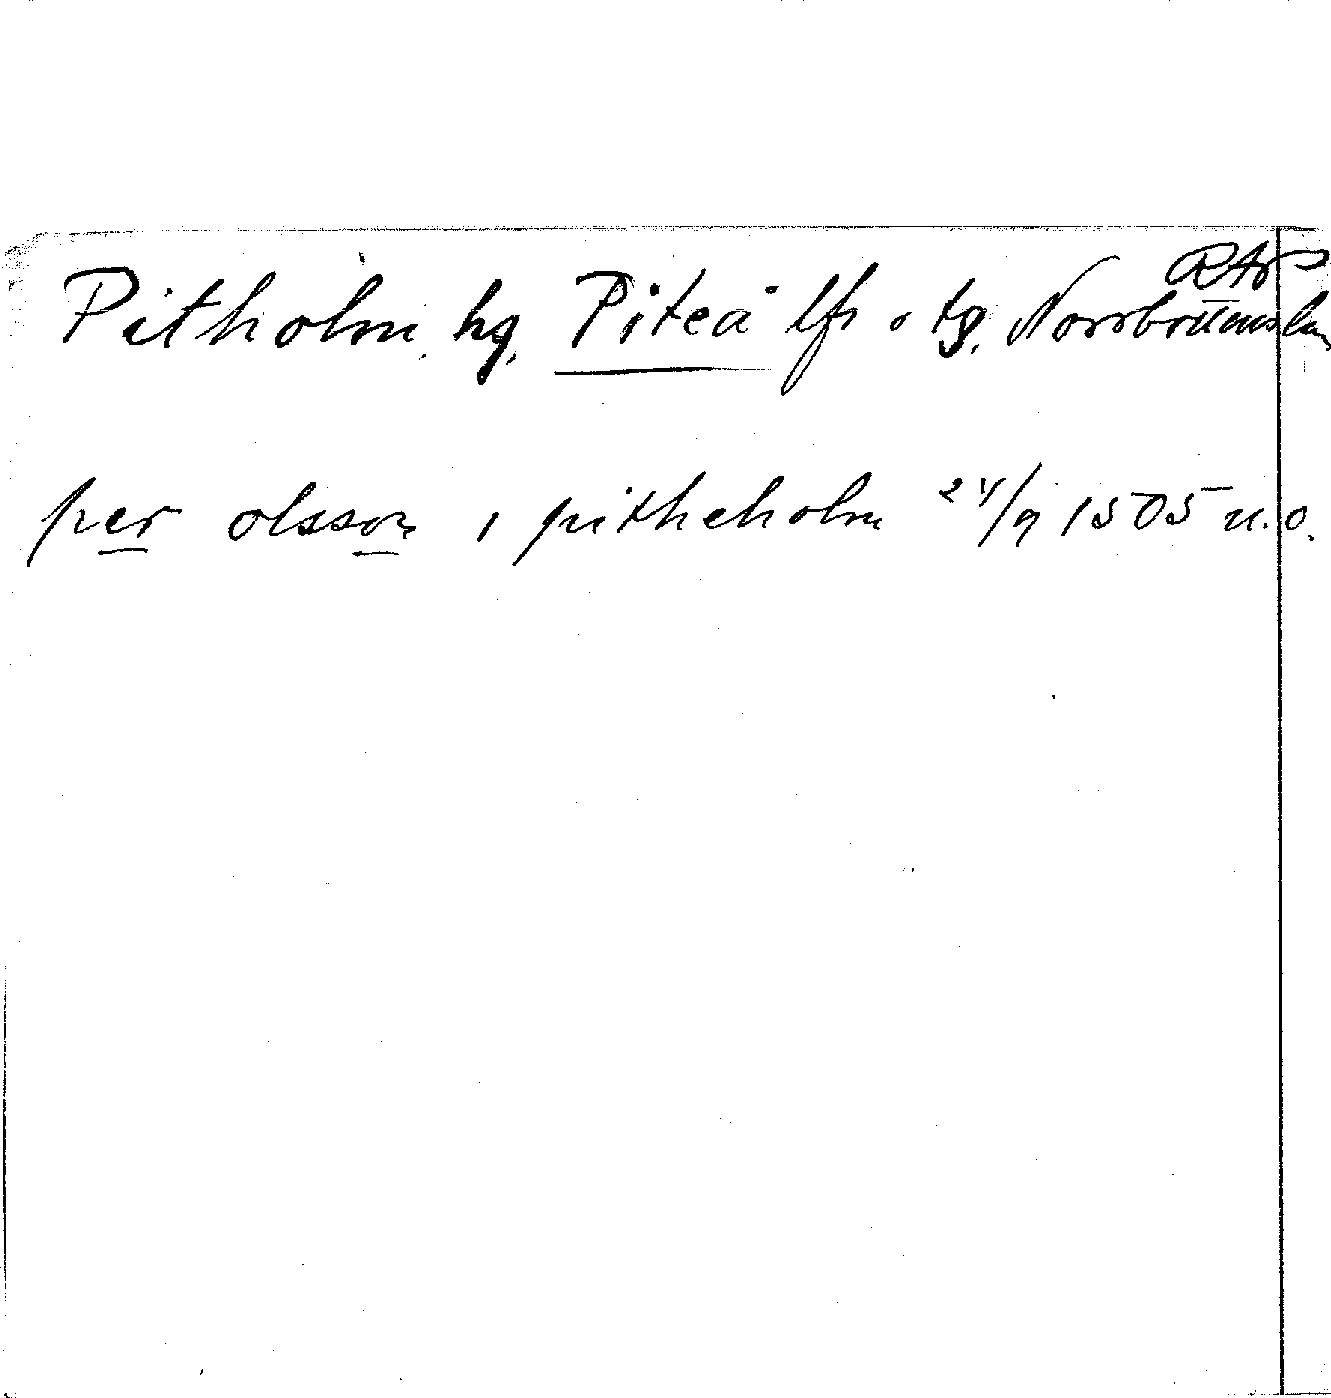 RAp
Pitholm, hg, Piteå lfs o tg, Norrbottens län
per olsson i pitheholm 24/9 1505 u.o.